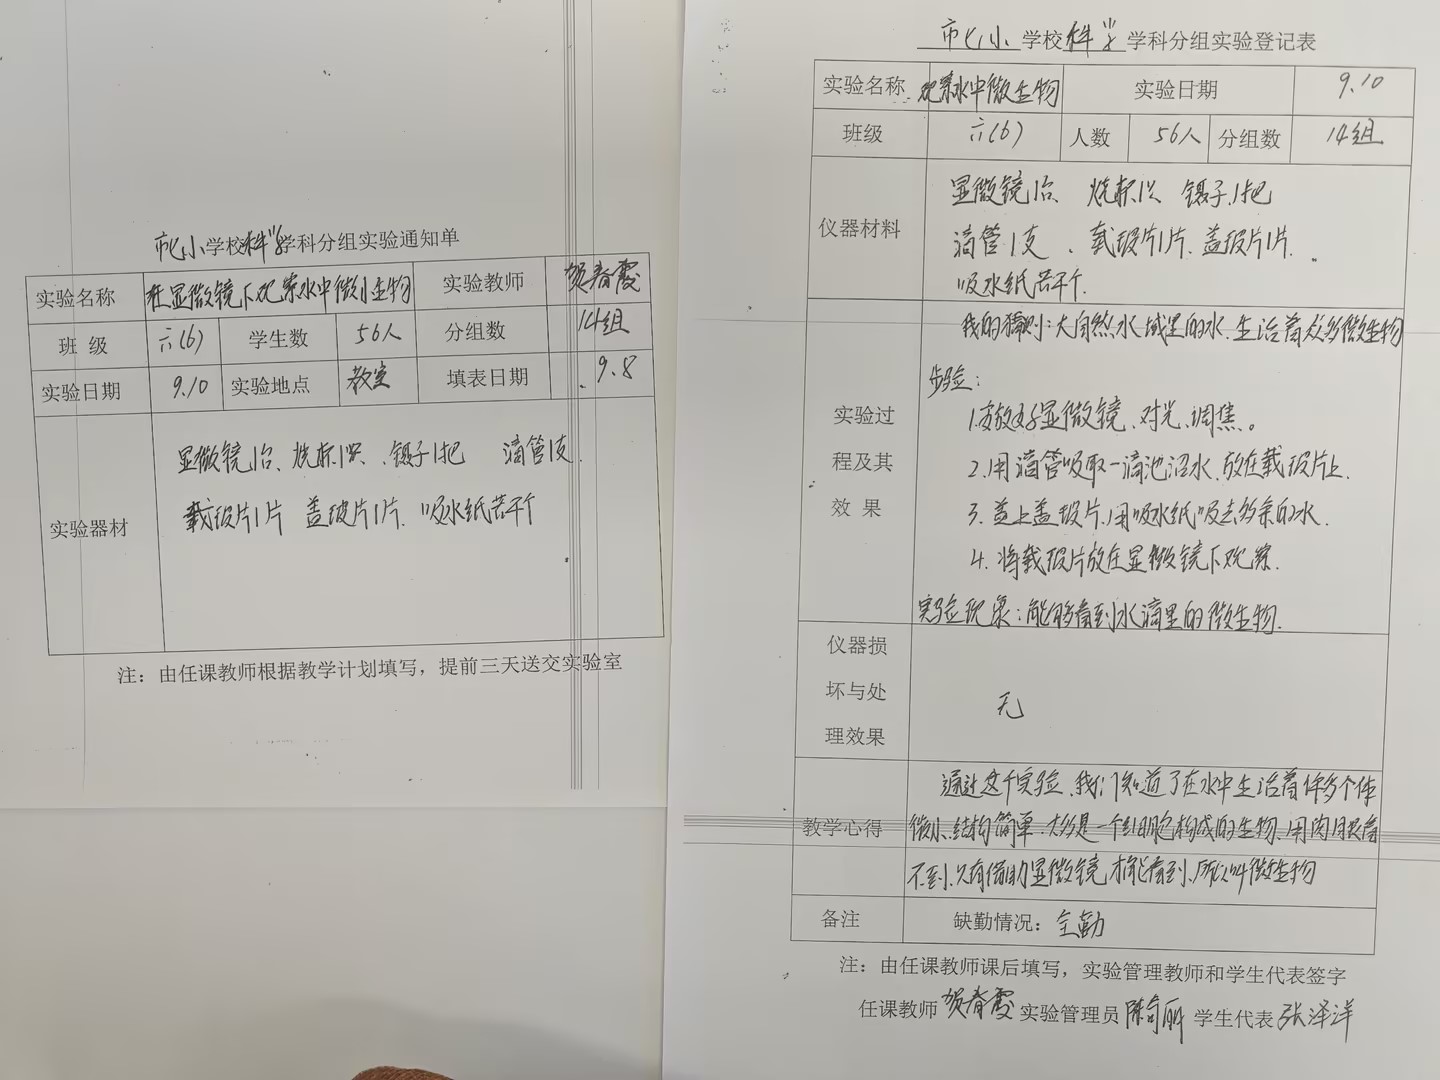 市七小学校科学学科分组实验通知单
实验名称 在显微镜下观察水中微小生物 实验教师 贺春霞
班 级 六(6) 学生数 56人 分组数 14组
实验日期 9.10 实验地点 教室 填表日期 9.8
实验器材
显微镜1台、烧杯1只、镊子1把 滴管1支
载玻片1片 盖玻片1片、吸水纸若干个
注：由任课教师根据教学计划填写，提前三天送交实验室
市七小学校科学学科分组实验登记表
实验名称 观察水中微生物 实验日期 9.10
班级 六(6) 人数 56人 分组数 14组
仪器材料
显微镜1台、烧杯1只 镊子1把
滴管1支、载玻片1片、盖玻片1片、
吸水纸若干个.
实验过
程及其
效 果
我的猜测:大自然水域里的水、生活着众多微生物
步验:
1.安放好显微镜、对光、调焦。
2.用滴管吸取一滴池沼水、放在载玻片上.
3.盖上盖玻片、用吸水纸吸去多余的水.
4.将载玻片放在显微镜下观察.
实验现象:能够看到水滴里的微生物.
仪器损
坏与处
理效果
无
教学心得
通过这个实验、我们知道了在水中生活着许多个体
微小、结构简单、大多是一个细胞构成的生物、用肉眼看
不到、只有借助显微镜才能看到、所以叫微生物
备注 缺勤情况：全勤
注：由任课教师课后填写，实验管理教师和学生代表签字
任课教师 贺春霞 实验管理员 陈 丽 学生代表 张泽洋